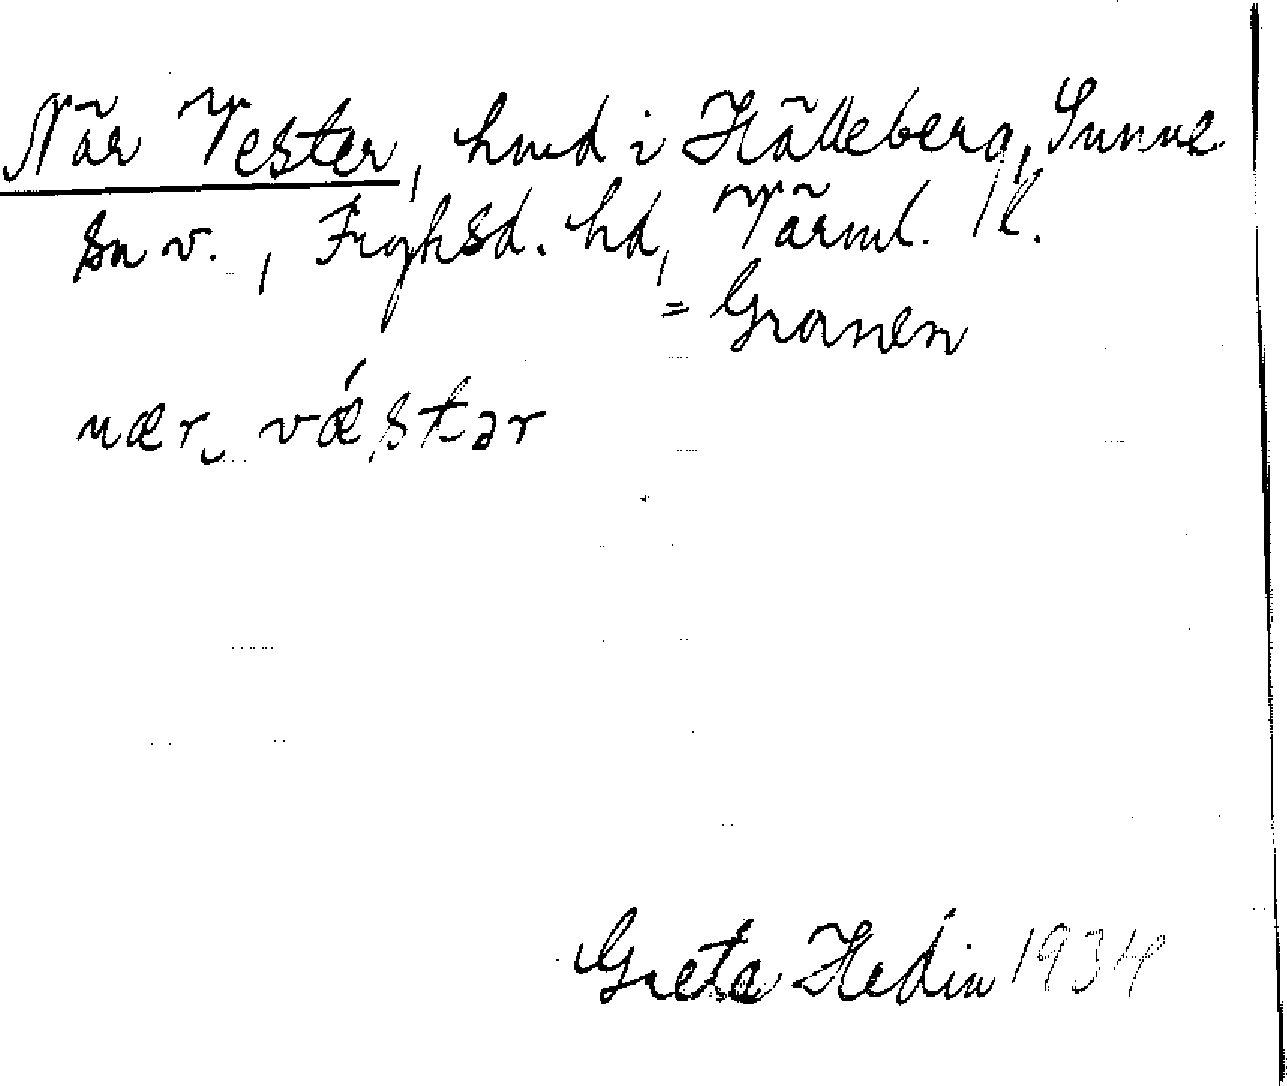 När Vester, hmd i Hälleberg, Sunne
sn v., Fryksd. hd, Värml. lk.
= Granen
nær vǽstər
Greta Hedin 1934